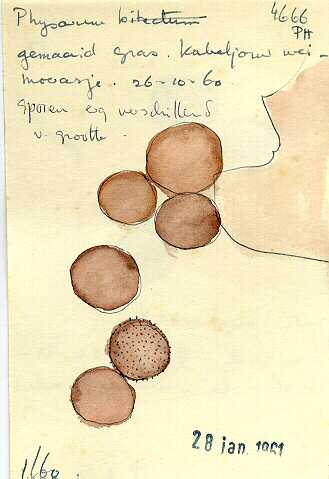 Physarum bitectum 4666
PH
gemaaid gras. Kabeljouw wei-
moerasje. 26-10-60
Sporen erg verschillend
v. grootte.
28 jan. 1961
1/60.